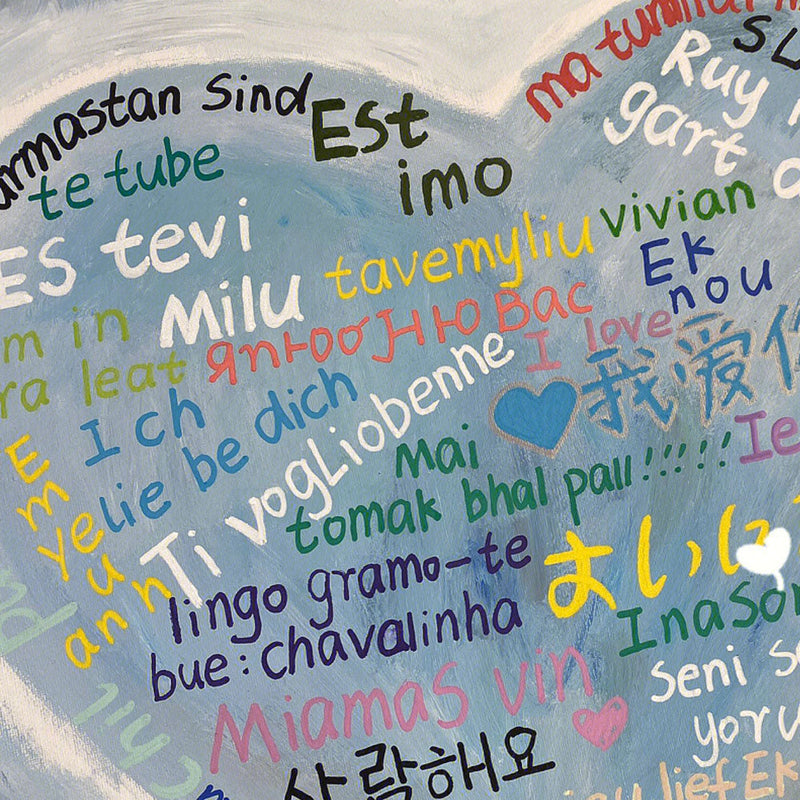 armastan Sind
te tube
Est
imo
ma
SL
Ruy
gart
ES tevi
Milu
tavemyliu
vivian
Ek
nou
m in
ra leat
ЯпюбЛю Вас
I love
我爱你
Ich
lie be dich
Ti vogLiobenne
Mai
tomak bhal pall!!!!!
Ie
Em
ye
u
ann
lingo gramo-te
bue:chavalinha
よいに
Inasor
Seni se
yoru
Miamas vin
사랑해요
lief Ek
chil